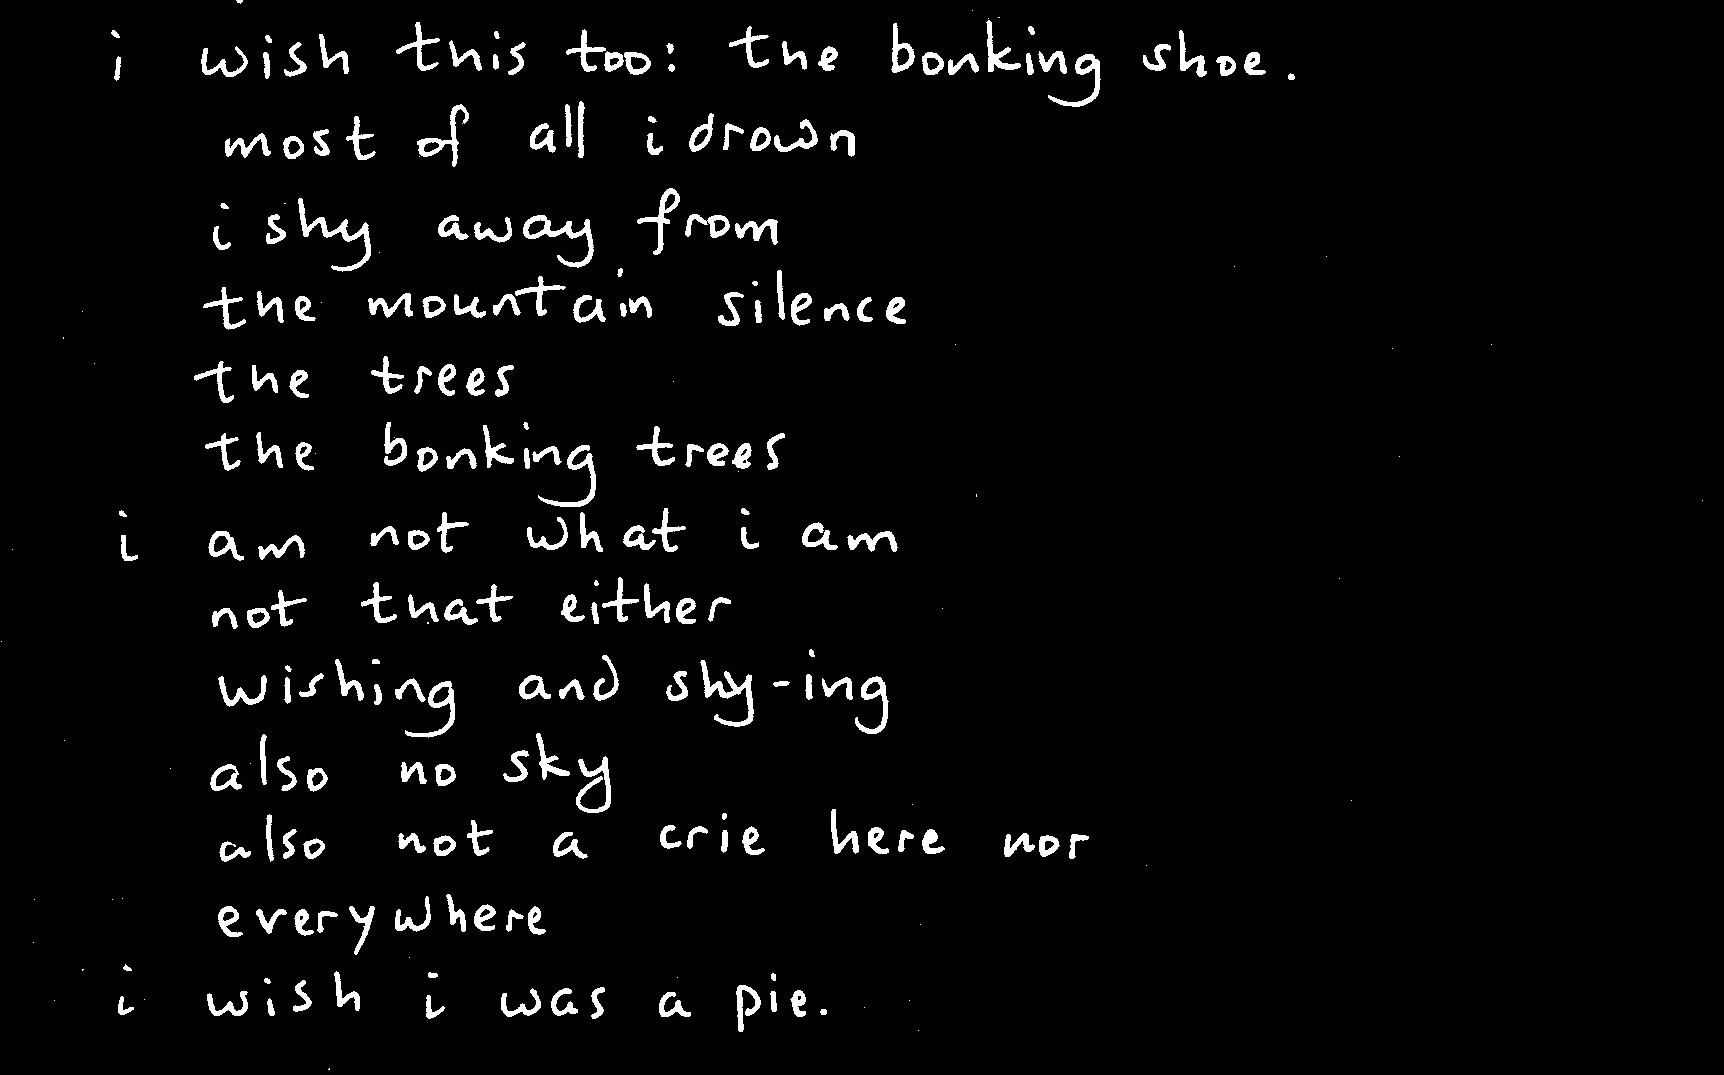 i wish this too: the bonking shoe.
most of all i drown
i shy away from
the mountain silence
the trees
the bonking trees
i am not what i am
not that either
wishing and shy-ing
also no sky
also not a crie here nor
everywhere
i wish i was a pie.